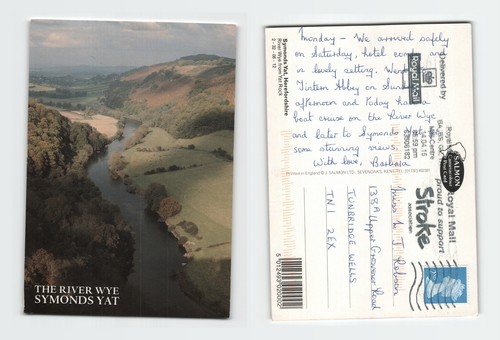 THE RIVER WYE
SYMONDS YAT
Monday – We arrived safely
on Saturday, hotel
in lovely setting. Went
Tintern Abbey on Sun
afternoon and today had a
boat cruise on the River Wye
and later to Symonds
some stunning views.
With love, Barbara
Symonds Yat, Herefordshire
River Wye from Yat Rock
2-32-06-12
Printed in England © J. SALMON LTD., SEVENOAKS, KENT
SALMON
5 012493 020002
Delivered by
Royal Mail
Royal Mail
proud to support
Stroke
association
Miss J.
138A Upper Grosvenor Road
TUNBRIDGE WELLS
TN1 2EX